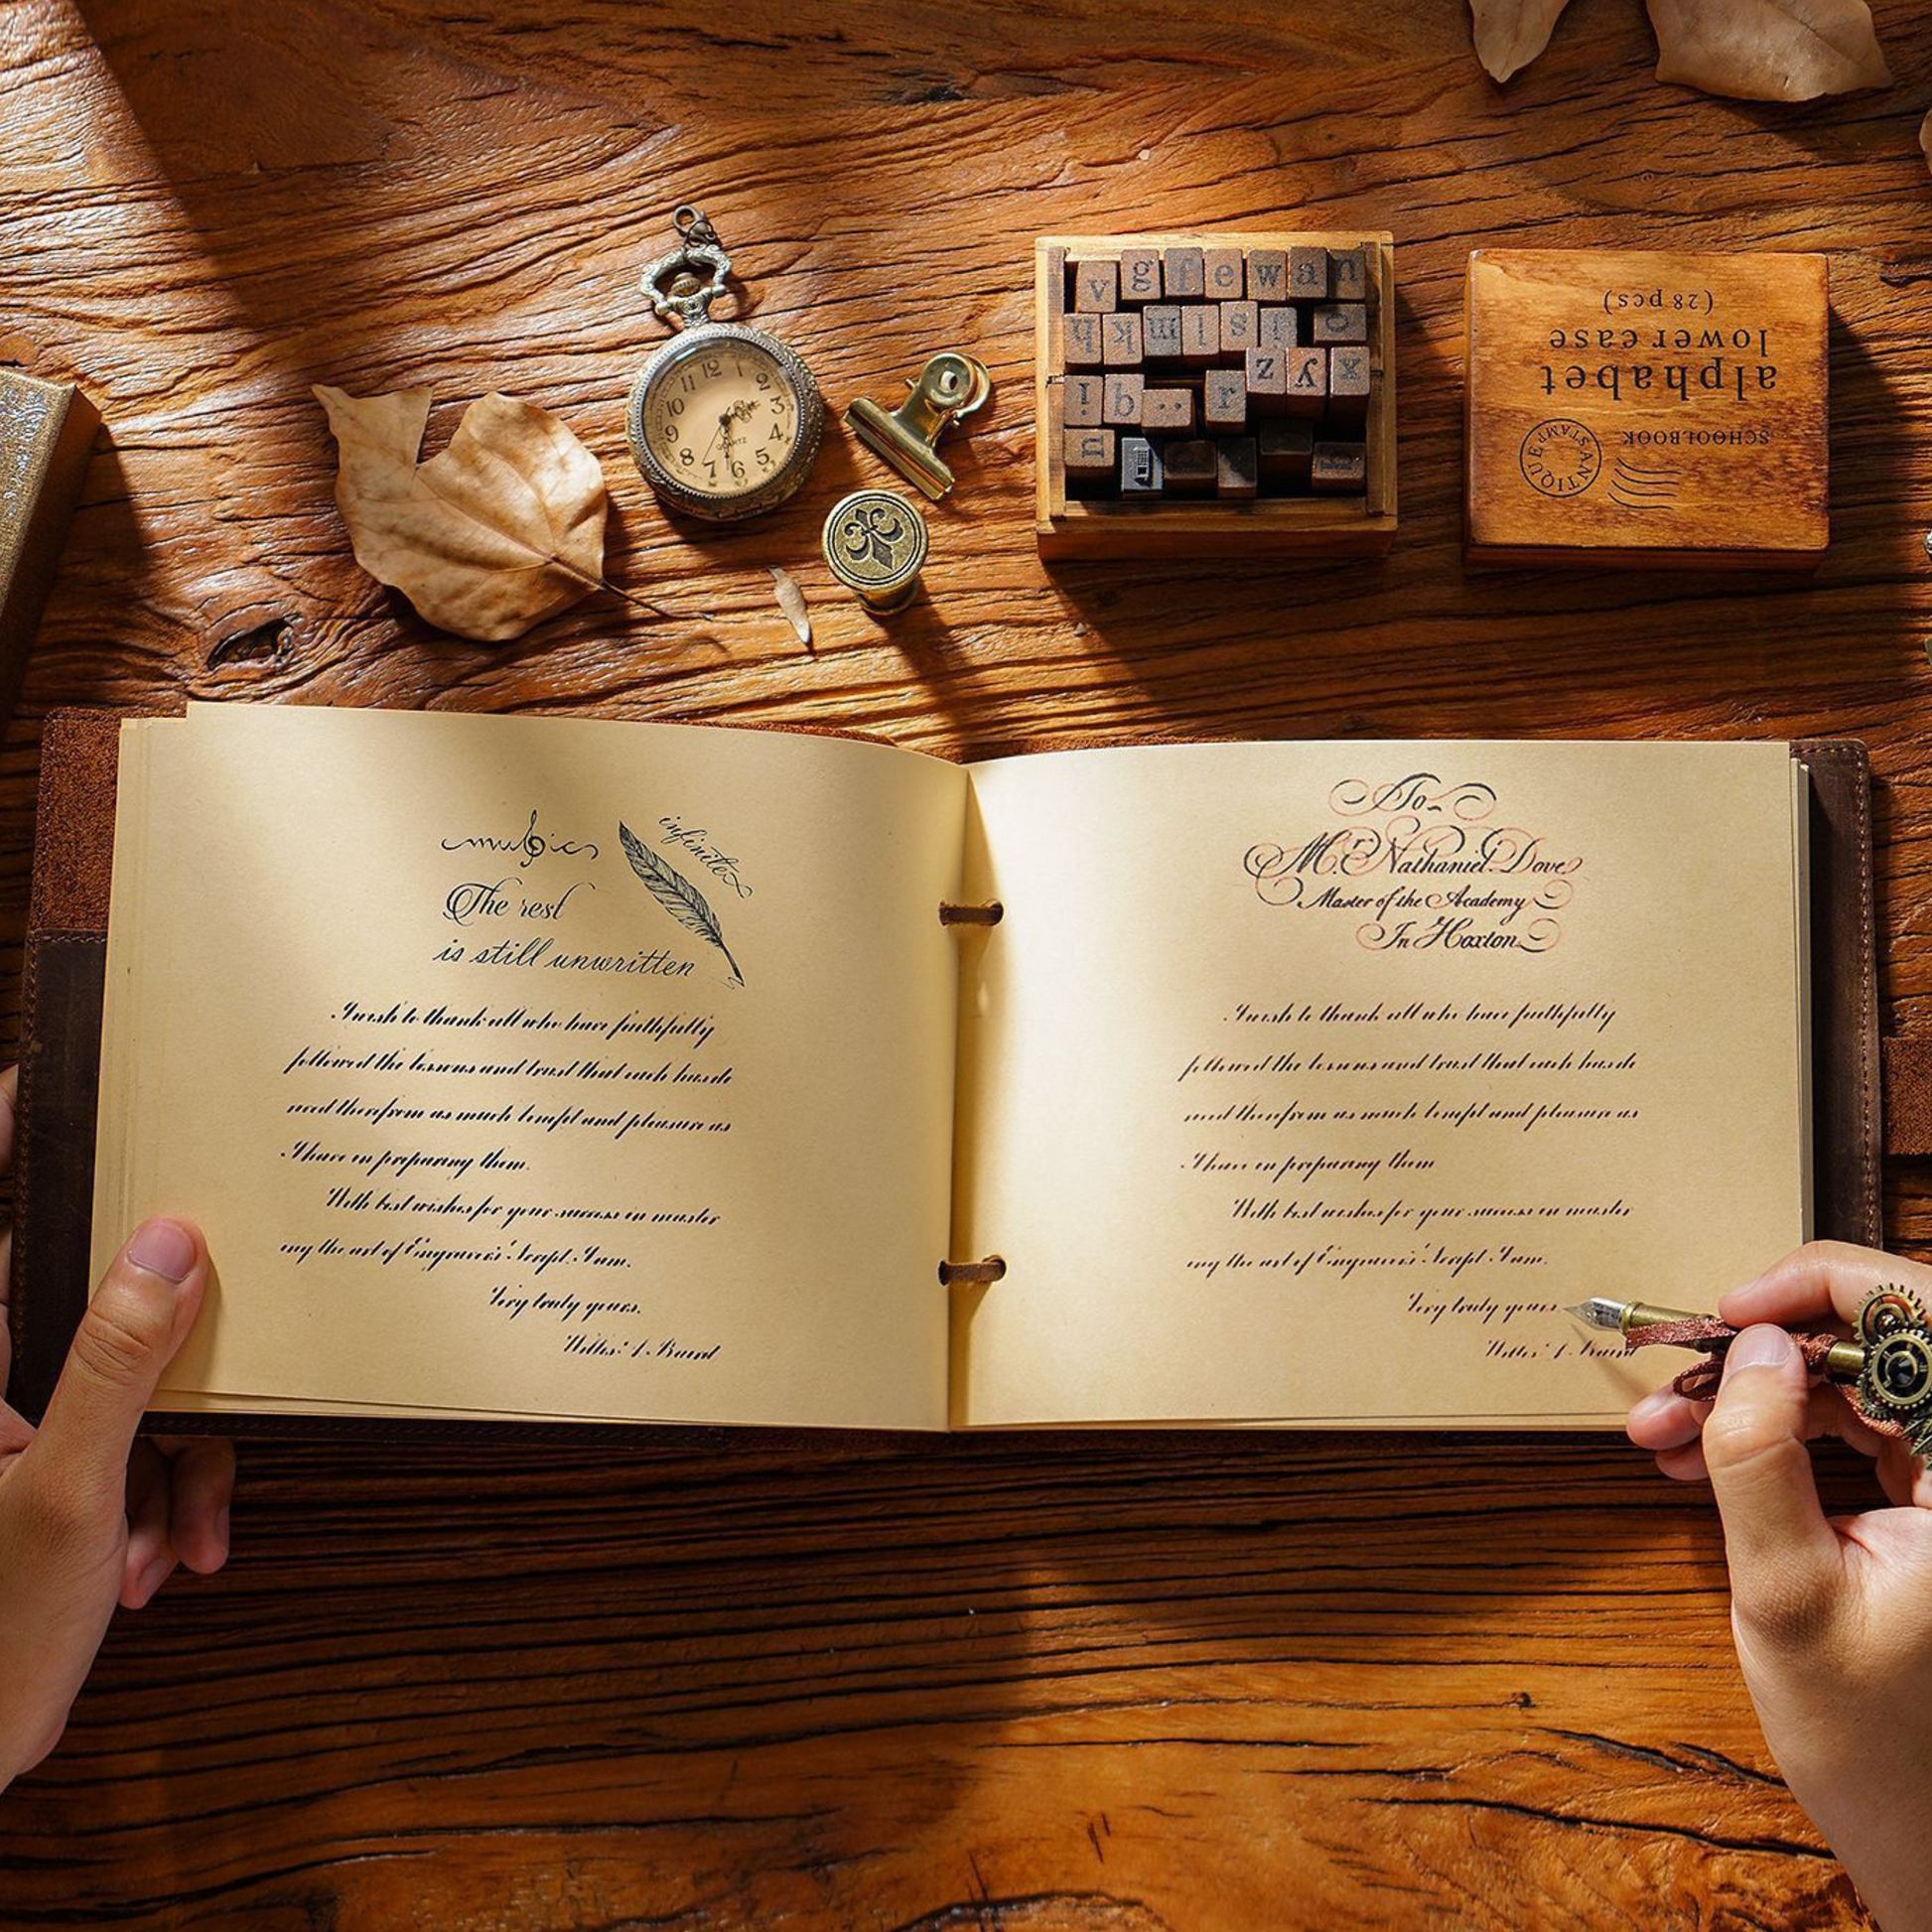 12
1
2
3
4
5
6
7
8
9
10
11
QUARTZ
v g f e w a n
h k m l s j o
z y x
i b r
u
(28 pcs)
lower case
alphabet
SCHOOLBOOK
ANTIQUE STAMP
music
infinite
The rest
is still unwritten
I wish to thank all who have faithfully
followed the lessons and trust that each has de
rived therefrom as much benefit and pleasure as
I have in preparing them.
With best wishes for your success in master
ing the art of Engravers' Script. I am.
Very truly yours.
Willis A. Baird
To
Mr. Nathaniel Dove
Master of the Academy
In Hoxton
I wish to thank all who have faithfully
followed the lessons and trust that each has de
rived therefrom as much benefit and pleasure as
I have in preparing them
With best wishes for your success in master
ing the art of Engravers' Script. I am.
Very truly yours
Willis A. Baird